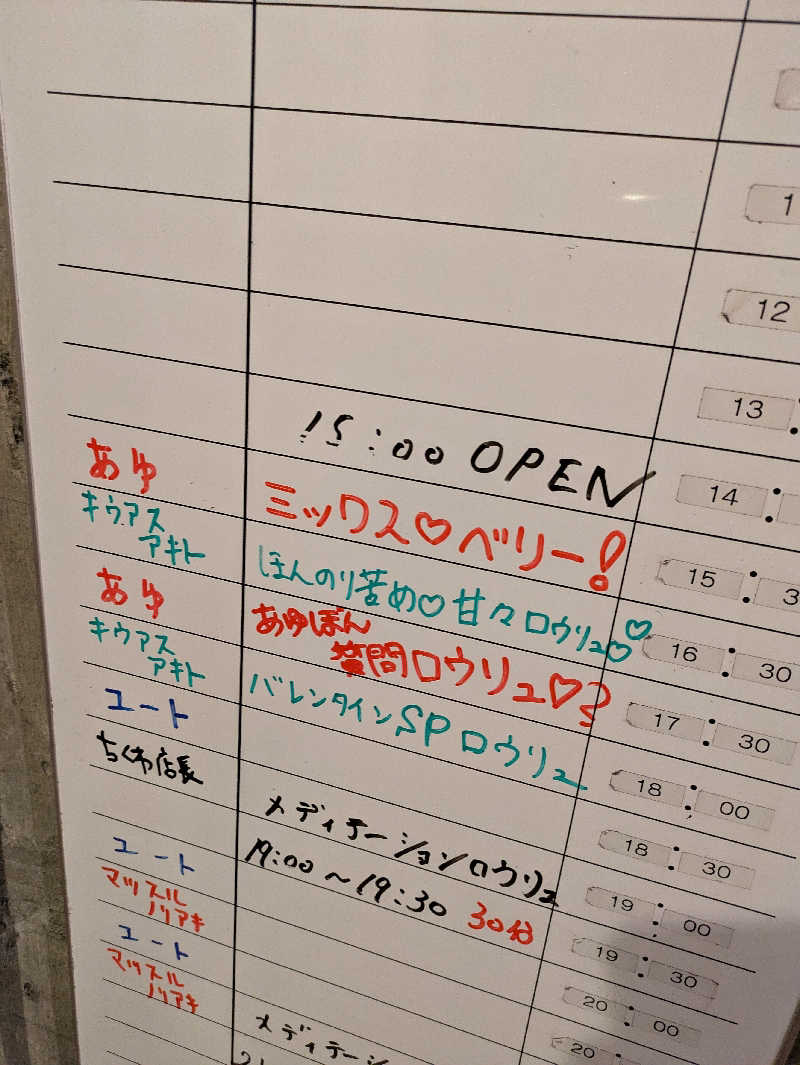 1
12
13:
15:00 OPEN
14:
あゆ ミックス♡ベリー! 15:3
キウアス アキト ほんのり苦め♡甘々ロウリュ♡♡ 16:30
あゆ あゆぽん 質問ロウリュ♡? 17:30
キウアス アキト バレンタインSPロウリュ 18:00
ユート 18:30
ちくわ店長 メディテーションロウリュ 19:00
19:00〜19:30 30分 19:30
ユート 20:00
マッスル ノリアキ 20
ユート
マッスル ノリアキ メディテーシ